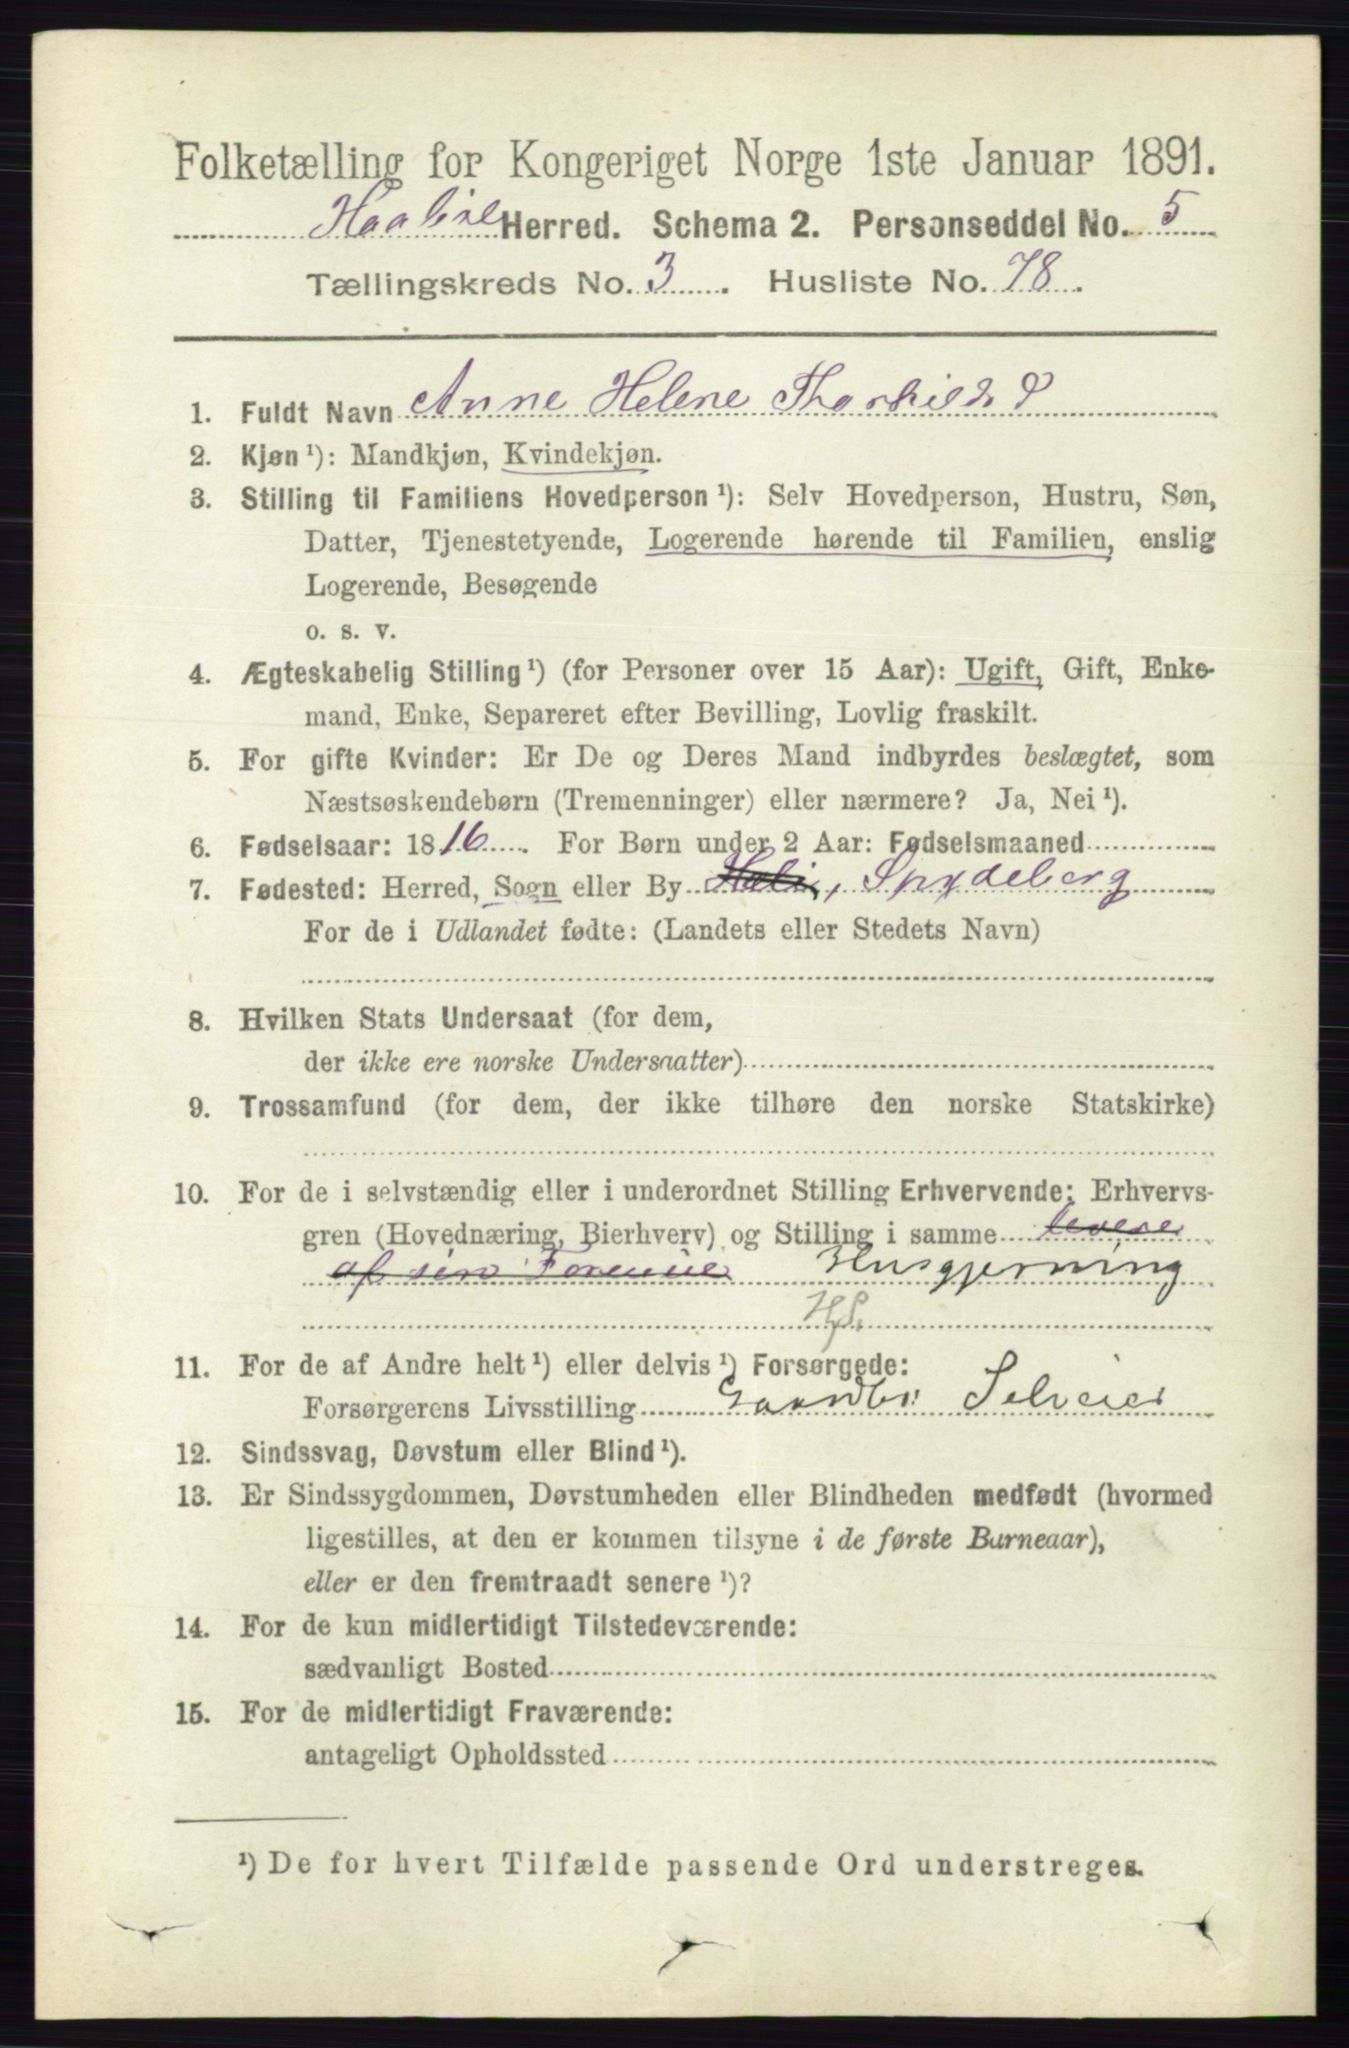 Folketælling for Kongeriget Norge 1ste Januar 1891.
Haabøl Herred. Schema 2. Personseddel No. 5
Tællingskreds No. 3. Husliste No. 78.
1. Fuldt Navn Anne Helene Thorkilds d
2. Kjøn ¹): Mandkjøn, Kvindekjøn.
3. Stilling til Familiens Hovedperson ¹): Selv Hovedperson, Hustru, Søn,
Datter, Tjenestetyende, Logerende hørende til Familien, enslig
Logerende, Besøgende
o. s. v.
4. Ægteskabelig Stilling ¹) (for Personer over 15 Aar): Ugift, Gift, Enke-
mand, Enke, Separeret efter Bevilling, Lovlig fraskilt.
5. For gifte Kvinder: Er De og Deres Mand indbyrdes beslægtet, som
Næstsøskendebørn (Tremenninger) eller nærmere? Ja, Nei ¹).
6. Fødselsaar: 1816. For Børn under 2 Aar: Fødselsmaaned
7. Fødested: Herred, Sogn eller By Spydeberg
For de i Udlandet fødte: (Landets eller Stedets Navn)
8. Hvilken Stats Undersaat (for dem,
der ikke ere norske Undersaatter)
9. Trossamfund (for dem, der ikke tilhøre den norske Statskirke)
10. For de i selvstændig eller i underordnet Stilling Erhvervende: Erhvervs-
gren (Hovednæring, Bierhverv) og Stilling i samme levere
af sin Formue Husgjerning
11. For de af Andre helt ¹) eller delvis ¹) Forsørgede:
Forsørgerens Livsstilling Gaardbr. Selveier
12. Sindssvag, Døvstum eller Blind ¹).
13. Er Sindssygdommen, Døvstumheden eller Blindheden medfødt (hvormed
ligestilles, at den er kommen tilsyne i de første Barneaar),
eller er den fremtraadt senere ¹)?
14. For de kun midlertidigt Tilstedeværende:
sædvanligt Bosted
15. For de midlertidigt Fraværende:
antageligt Opholdssted
¹) De for hvert Tilfælde passende Ord understreges.